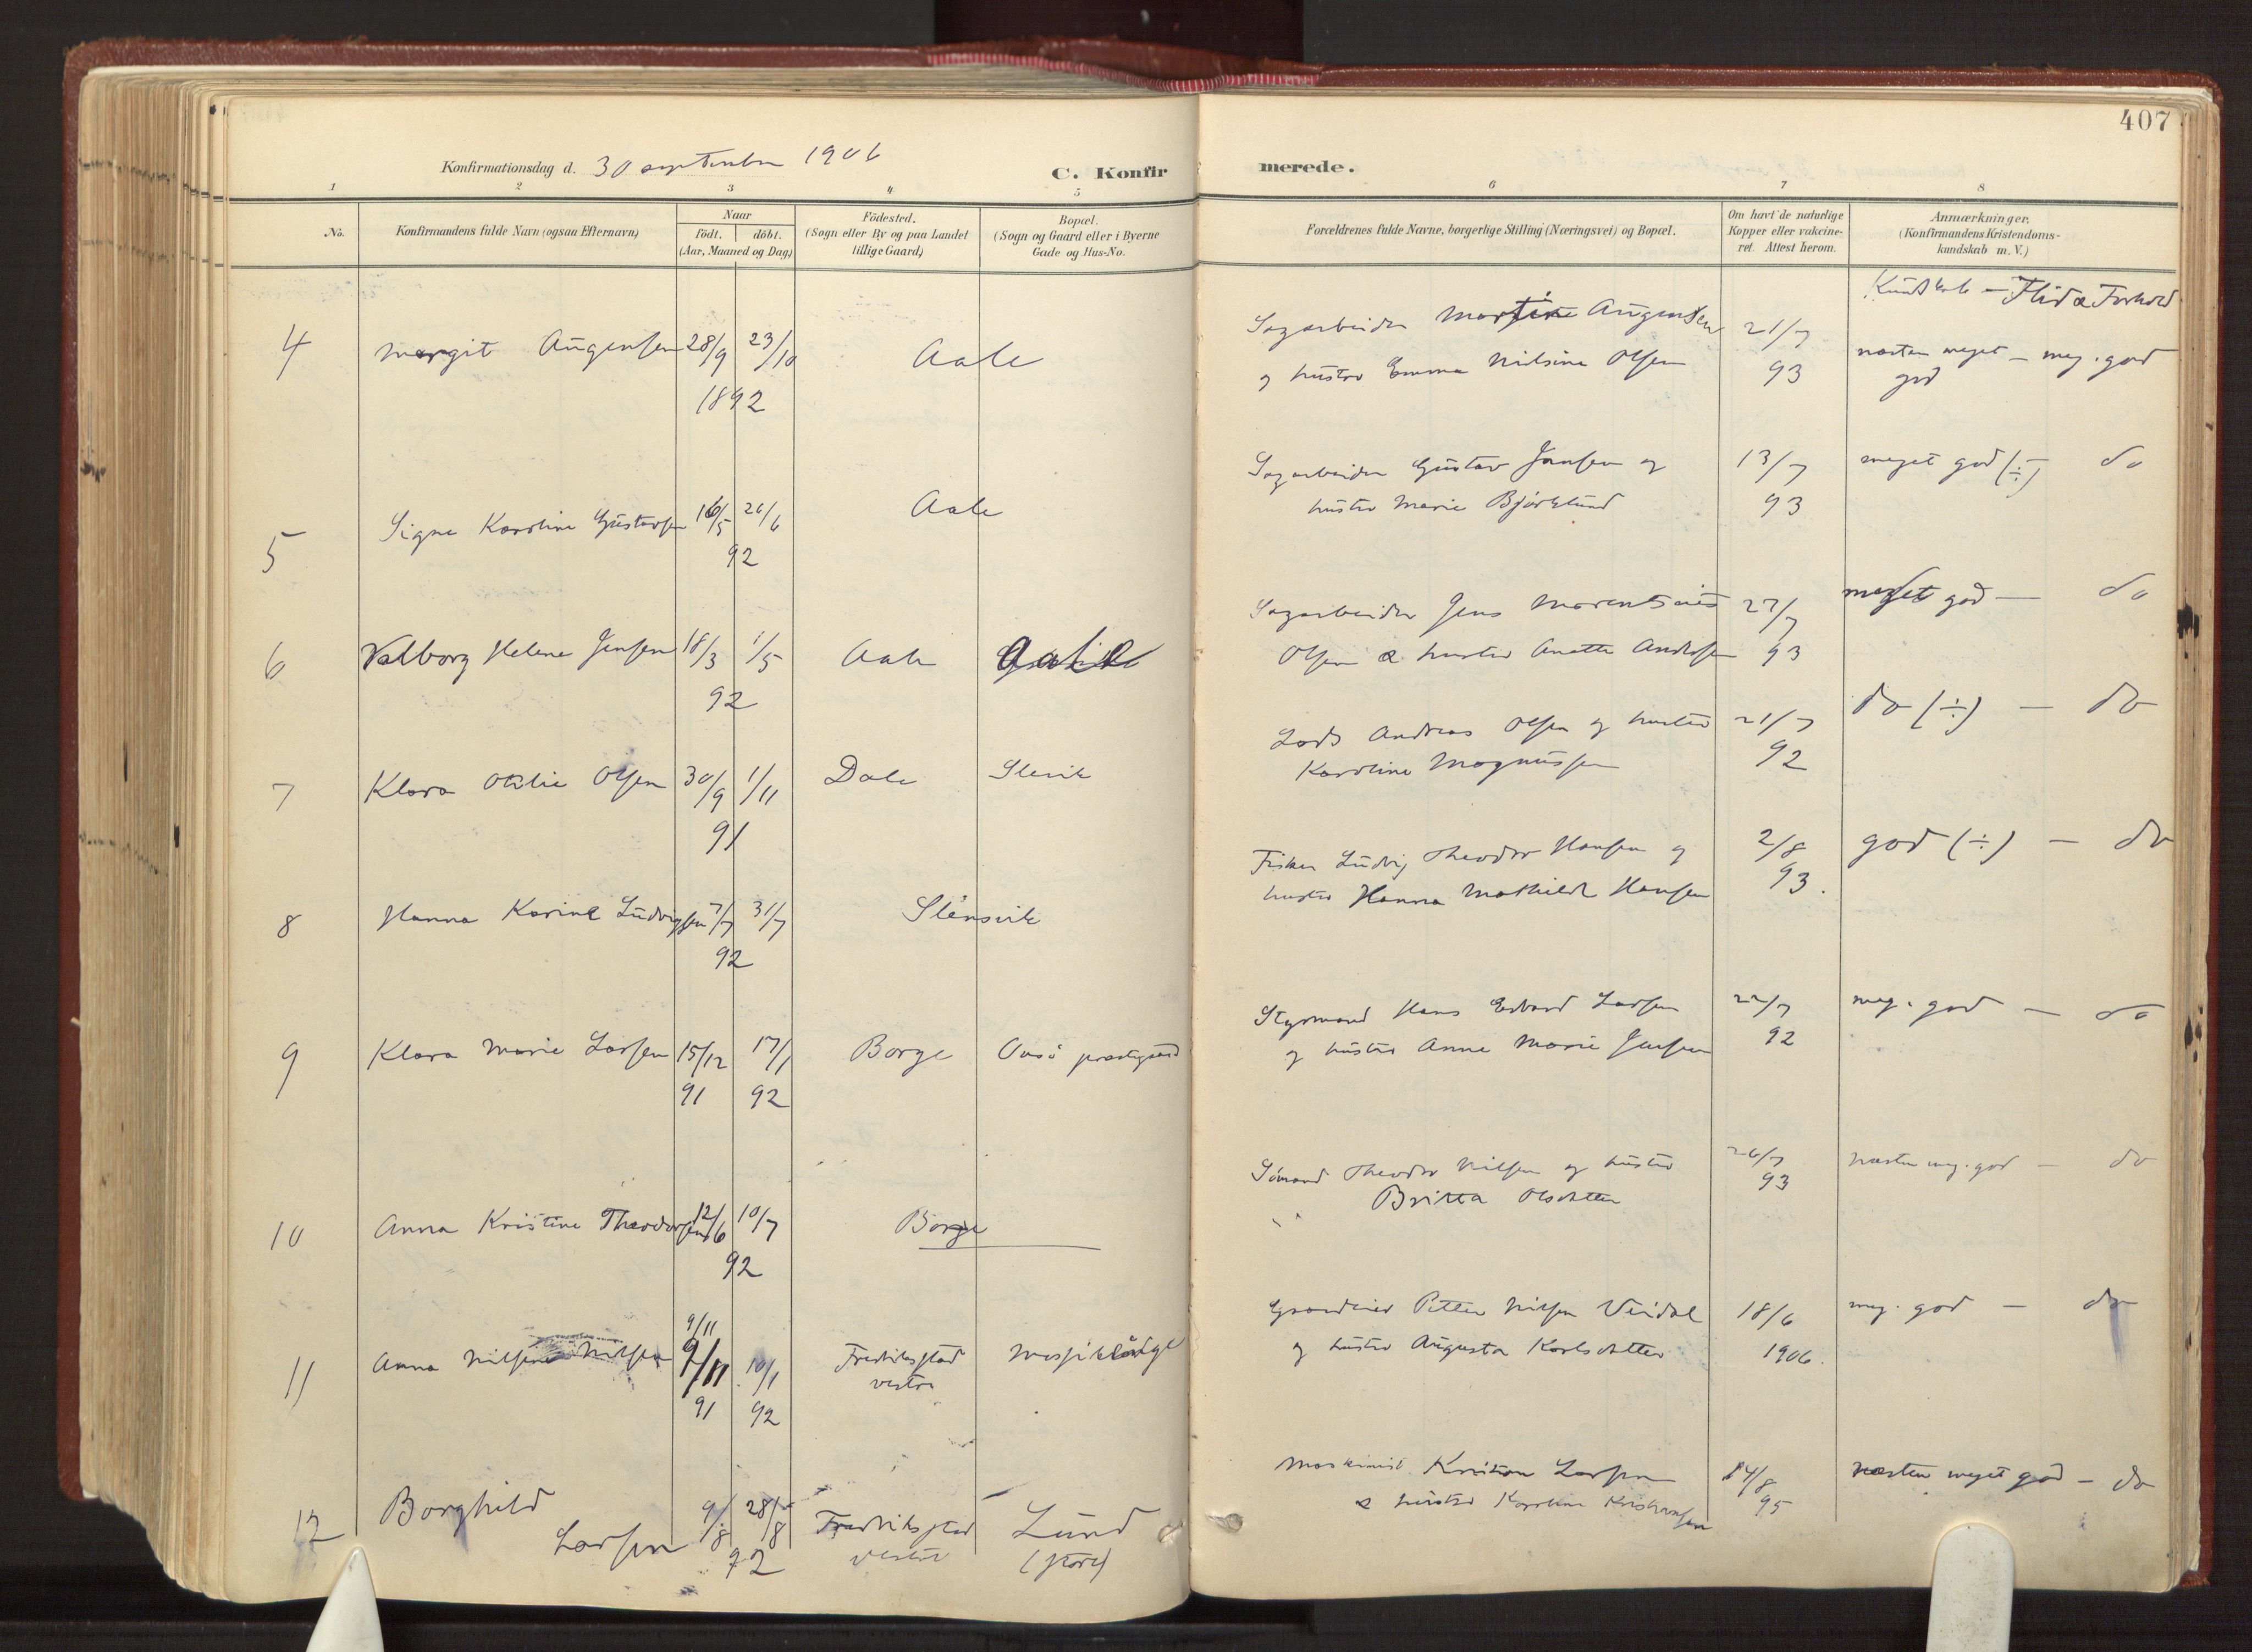 407
Konfirmationsdag d. 30 september 1906
C. Konfir merede.
1 2 3 4 5 6 7 8
No.
Konfirmandens fulde Navn (ogsaa Efternavn)
Naar
födt. döbt.
(Aar, Maaned og Dag)
Födested.
(Sogn eller By og paa Landet
tillige Gaard)
Bopæl.
(Sogn og Gaard eller i Byerne
Gade og Hus-No.
Forældrenes fulde Navne, borgerlige Stilling (Næringsvei) og Bopæl.
Om havt de naturlige
Kopper eller vakcine-
ret. Attest herom.
Anmærkninger,
(Konfirmandens Kristendoms-
kundskab m. V.)
Kundskab – Flid & Forhold
4 Margit Augensen 28/9 23/10 Aale
1892
Sagarbeider Augensen 21/7
og hustru Emma Nilsine Olsen 93
næsten meget – meg. god
god
5 Signe Karoline Gustavsen 16/5 26/6 Aale
92
Sagarbeider Gustav Jansen og 13/7 meget god (÷) – do
hustru Marie Björklund 93
6 Valborg Helene Jensen 18/3 1/5 Aale
92
Sagarbeider Jens 27/7 meget god – do
Olsen & hustru Anette Andersen 93
7 Klara Otilie Olsen 30/9 1/11 Dale Slevik
91
Lods Andreas Olsen og hustru 21/7 do (÷) – do
Karoline Magnussen 92
8 Hanna Karine Ludvigsen 7/7 31/7
92
Fisker Ludvig Theodor Hansen og 2/8 god (÷) – do
hustru Hanna Mathilde Hansen 93.
9 Klara Marie Larsen 15/12 17/1 Borge Onsö prestegaard
91 92
Styrmand Hans Edvard Larsen 22/7 meg. god – do
og hustru Anne Marie Jensen 92
10 Anna Kristine Theodorsen 12/6 10/7 Borge
92
Sömand Theodor Nilsen og hustru 26/7 næsten meg. god – do
Britta Olsdatter 93
9/11
11 Anna Nilsine Nilsen 9/11 10/1 Fredriksstad
91 92 vestre
Gaardeier Petter Nilsen Veidal 18/6 meg. god – do
og hustru Augusta Karlsdatter 1906.
12 Borghild
Larsen 9/8 28/8 Fredriksstad Lund
92 vestre (store)
Maskinist Kristian Larsen 14/8 næsten meget god – do
& hustru Karoline Kristiansen 95